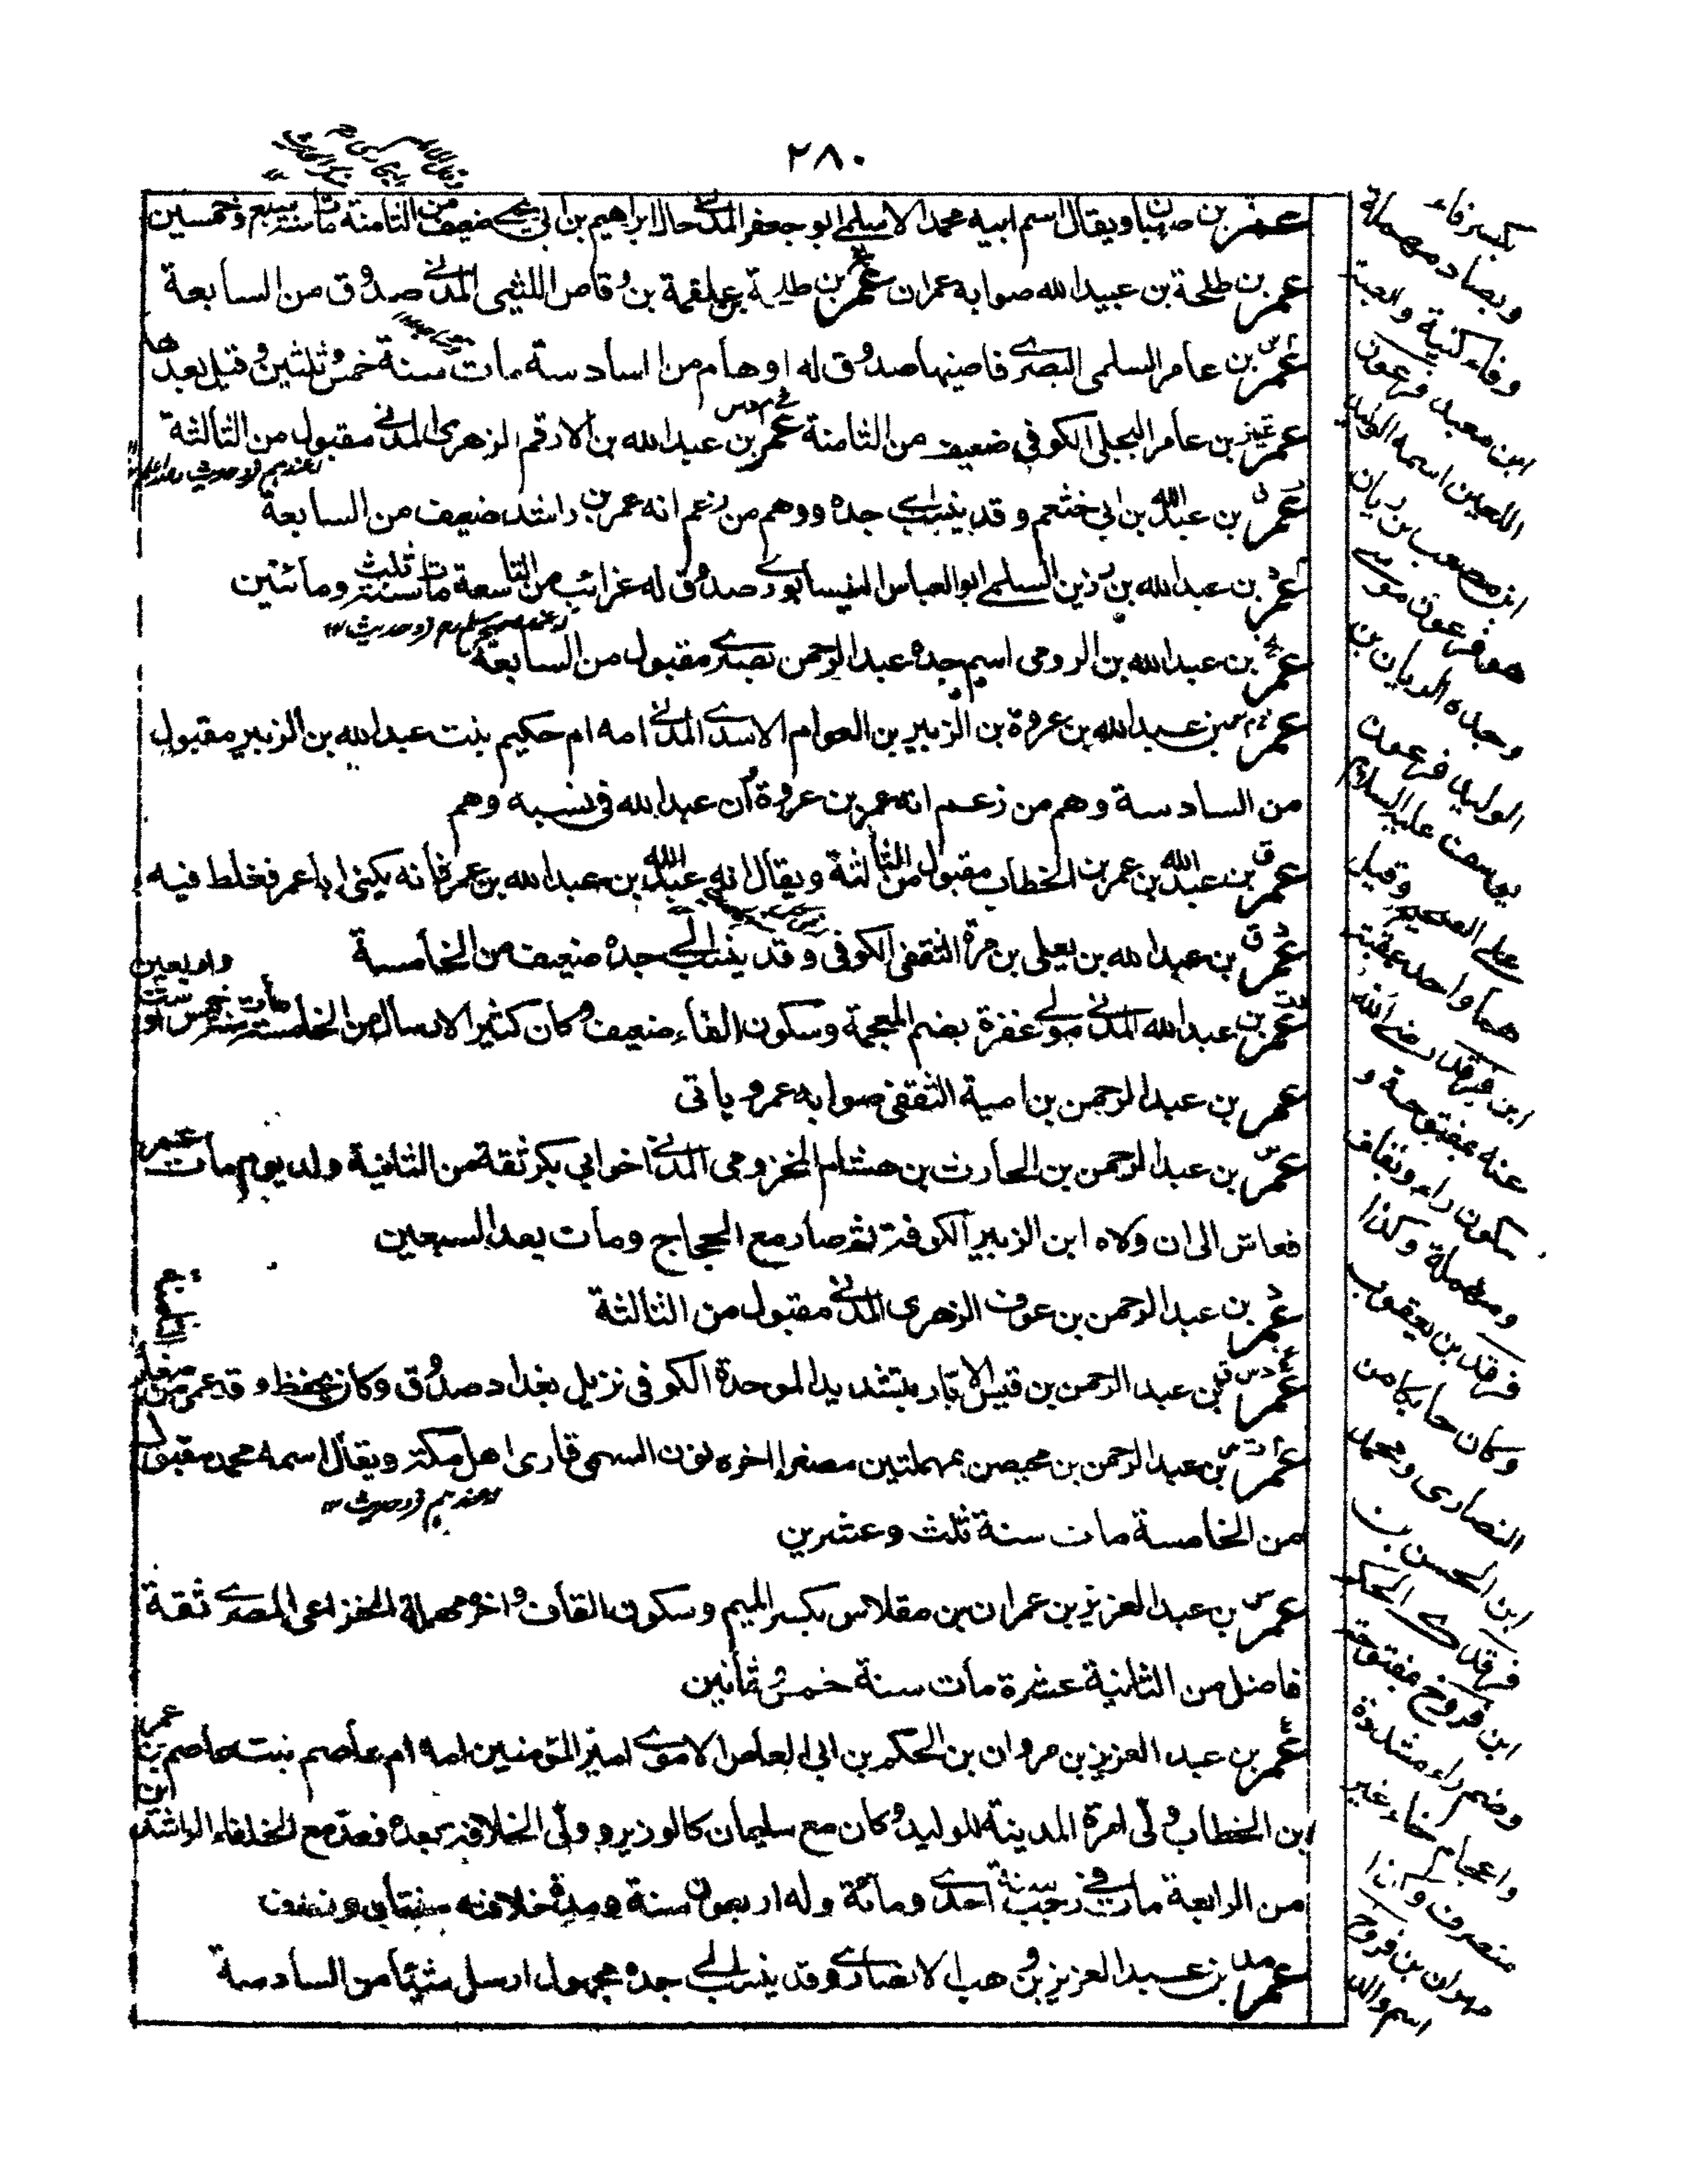 ٢٨٠
عمر بن صهبان ويقال اسم ابيه محمد الاسلمي ابو جعفر المدني خال ابراهيم بن ابي يحيى ضعيف من الثامنة مات سنة سبع وخمسين
عمر بن طلحة بن عبيد الله صوابه عمران عمر بن طلحة بن علقمة بن وقاص الليثي المدني صدوق من السابعة
عمر بن عامر السلمي البصري قاضيها صدوق له اوهام من السادسة مات سنة خمس وثلثين وقيل بعدها
عمر تمييز بن عامر البجلي الكوفي ضعيف من الثامنة عمر بن عبد الله بن الارقم الزهري المدني مقبول من الثالثة
عمر بن عبد الله بن ابي خثعم وقد ينسب الى جده ووهم من زعم انه عمر بن راشد ضعيف من السابعة
عمر بن عبد الله بن رزين السلمي ابو العباس النيسابوري صدوق له غرائب من التاسعة مات سنة ثلث ومائتين
عمر بن عبد الله بن الرومي اسم جده عبد الرحمن بصري مقبول من السابعة
عمر بن عبد الله بن عروة بن الزبير بن العوام الاسدي المدني امه ام حكيم بنت عبد الله بن الزبير مقبول
من السادسة وهم من زعم انه عمر بن عروة وأن عبد الله في نسبه وهم
عمر ق بن عبد الله بن عمر بن الخطاب مقبول من الثالثة ويقال انه عبد الله بن عبد الله بن عمر فانه يكنى ابا عمر فغلط فيه
عمر د ق بن عبد الله بن يعلى بن مرة الثقفي الكوفي وقد ينسب الى جده ضعيف من الخامسة
عمر د ت بن عبد الله المدني مولى غفرة بضم المعجمة وسكون الفاء ضعيف وكان كثير الارسال من الخامسة مات سنة خمس او ست واربعين
عمر بن عبد الرحمن بن امية الثقفي صوابه عمرو ياتي
عمر س بن عبد الرحمن بن الحارث بن هشام المخزومي المدني اخو ابي بكر ثقة من الثانية ولد يوم مات عمر
فعاش الى ان ولاه ابن الزبير الكوفة ثم صار مع الحجاج ومات بعد السبعين
عمر د بن عبد الرحمن بن عوف الزهري المدني مقبول من الثالثة
عمر بن عبد الرحمن بن قيس الابار بتشديد الموحدة الكوفي نزيل بغداد صدوق وكان يحفظ وقد عمي من صغار
عمر بن عبد الرحمن بن محيصن بمهملتين مصغرا اخره نون السهمي قارى اهل مكة ويقال اسمه محمد مقبول
من الخامسة مات سنة ثلث وعشرين
عمر س بن عبد العزيز بن عمران بن مقلاص بكسر الميم وسكون القاف واخره مهملة الخزاعي المصري ثقة
فاضل من الثانية عشرة مات سنة خمس وثمانين
عمر ع بن عبد العزيز بن مروان بن الحكم بن ابي العاص الاموي امير المؤمنين امه ام عاصم بنت عاصم بن عمر
بن الخطاب ولى امرة المدينة للوليد وكان مع سليمان كالوزير وولى الخلافة بعده فعد مع الخلفاء الراشدين
من الرابعة مات في رجب سنة احدى ومائة وله اربعون سنة ومدة خلافته سنتان ونصف
عمر مد بن عبد العزيز بن وهب الانصاري وقد ينسب الى جده مجهول ارسل شيئا من السادسة
بكسر فاء
وبصاد مهملة
وفاء كنية والعبة
ابن معبد فرعون
اللعين اسمه الوليد
ابن مصعب بن ريان
هو فرعون موسى
وجده الريان بن
الوليد فرعون
يوسف عليه السلام
وقيل
على الصحيح
هما واحد عقبة
ابن فرقد رضي الله
عنه بمفتوحة و
سكون راء وبقاف
ومهملة وكذا
فرقد بن يعقوب
وكان حايكا من
النصارى ومحمد
ابن الحسن بن
فرقد
ابن فروخ بمفتوحة
وضم راء مشددة
واعجام خاء غير
منصرف وكذا
مهران بن فروخ
اسم والد